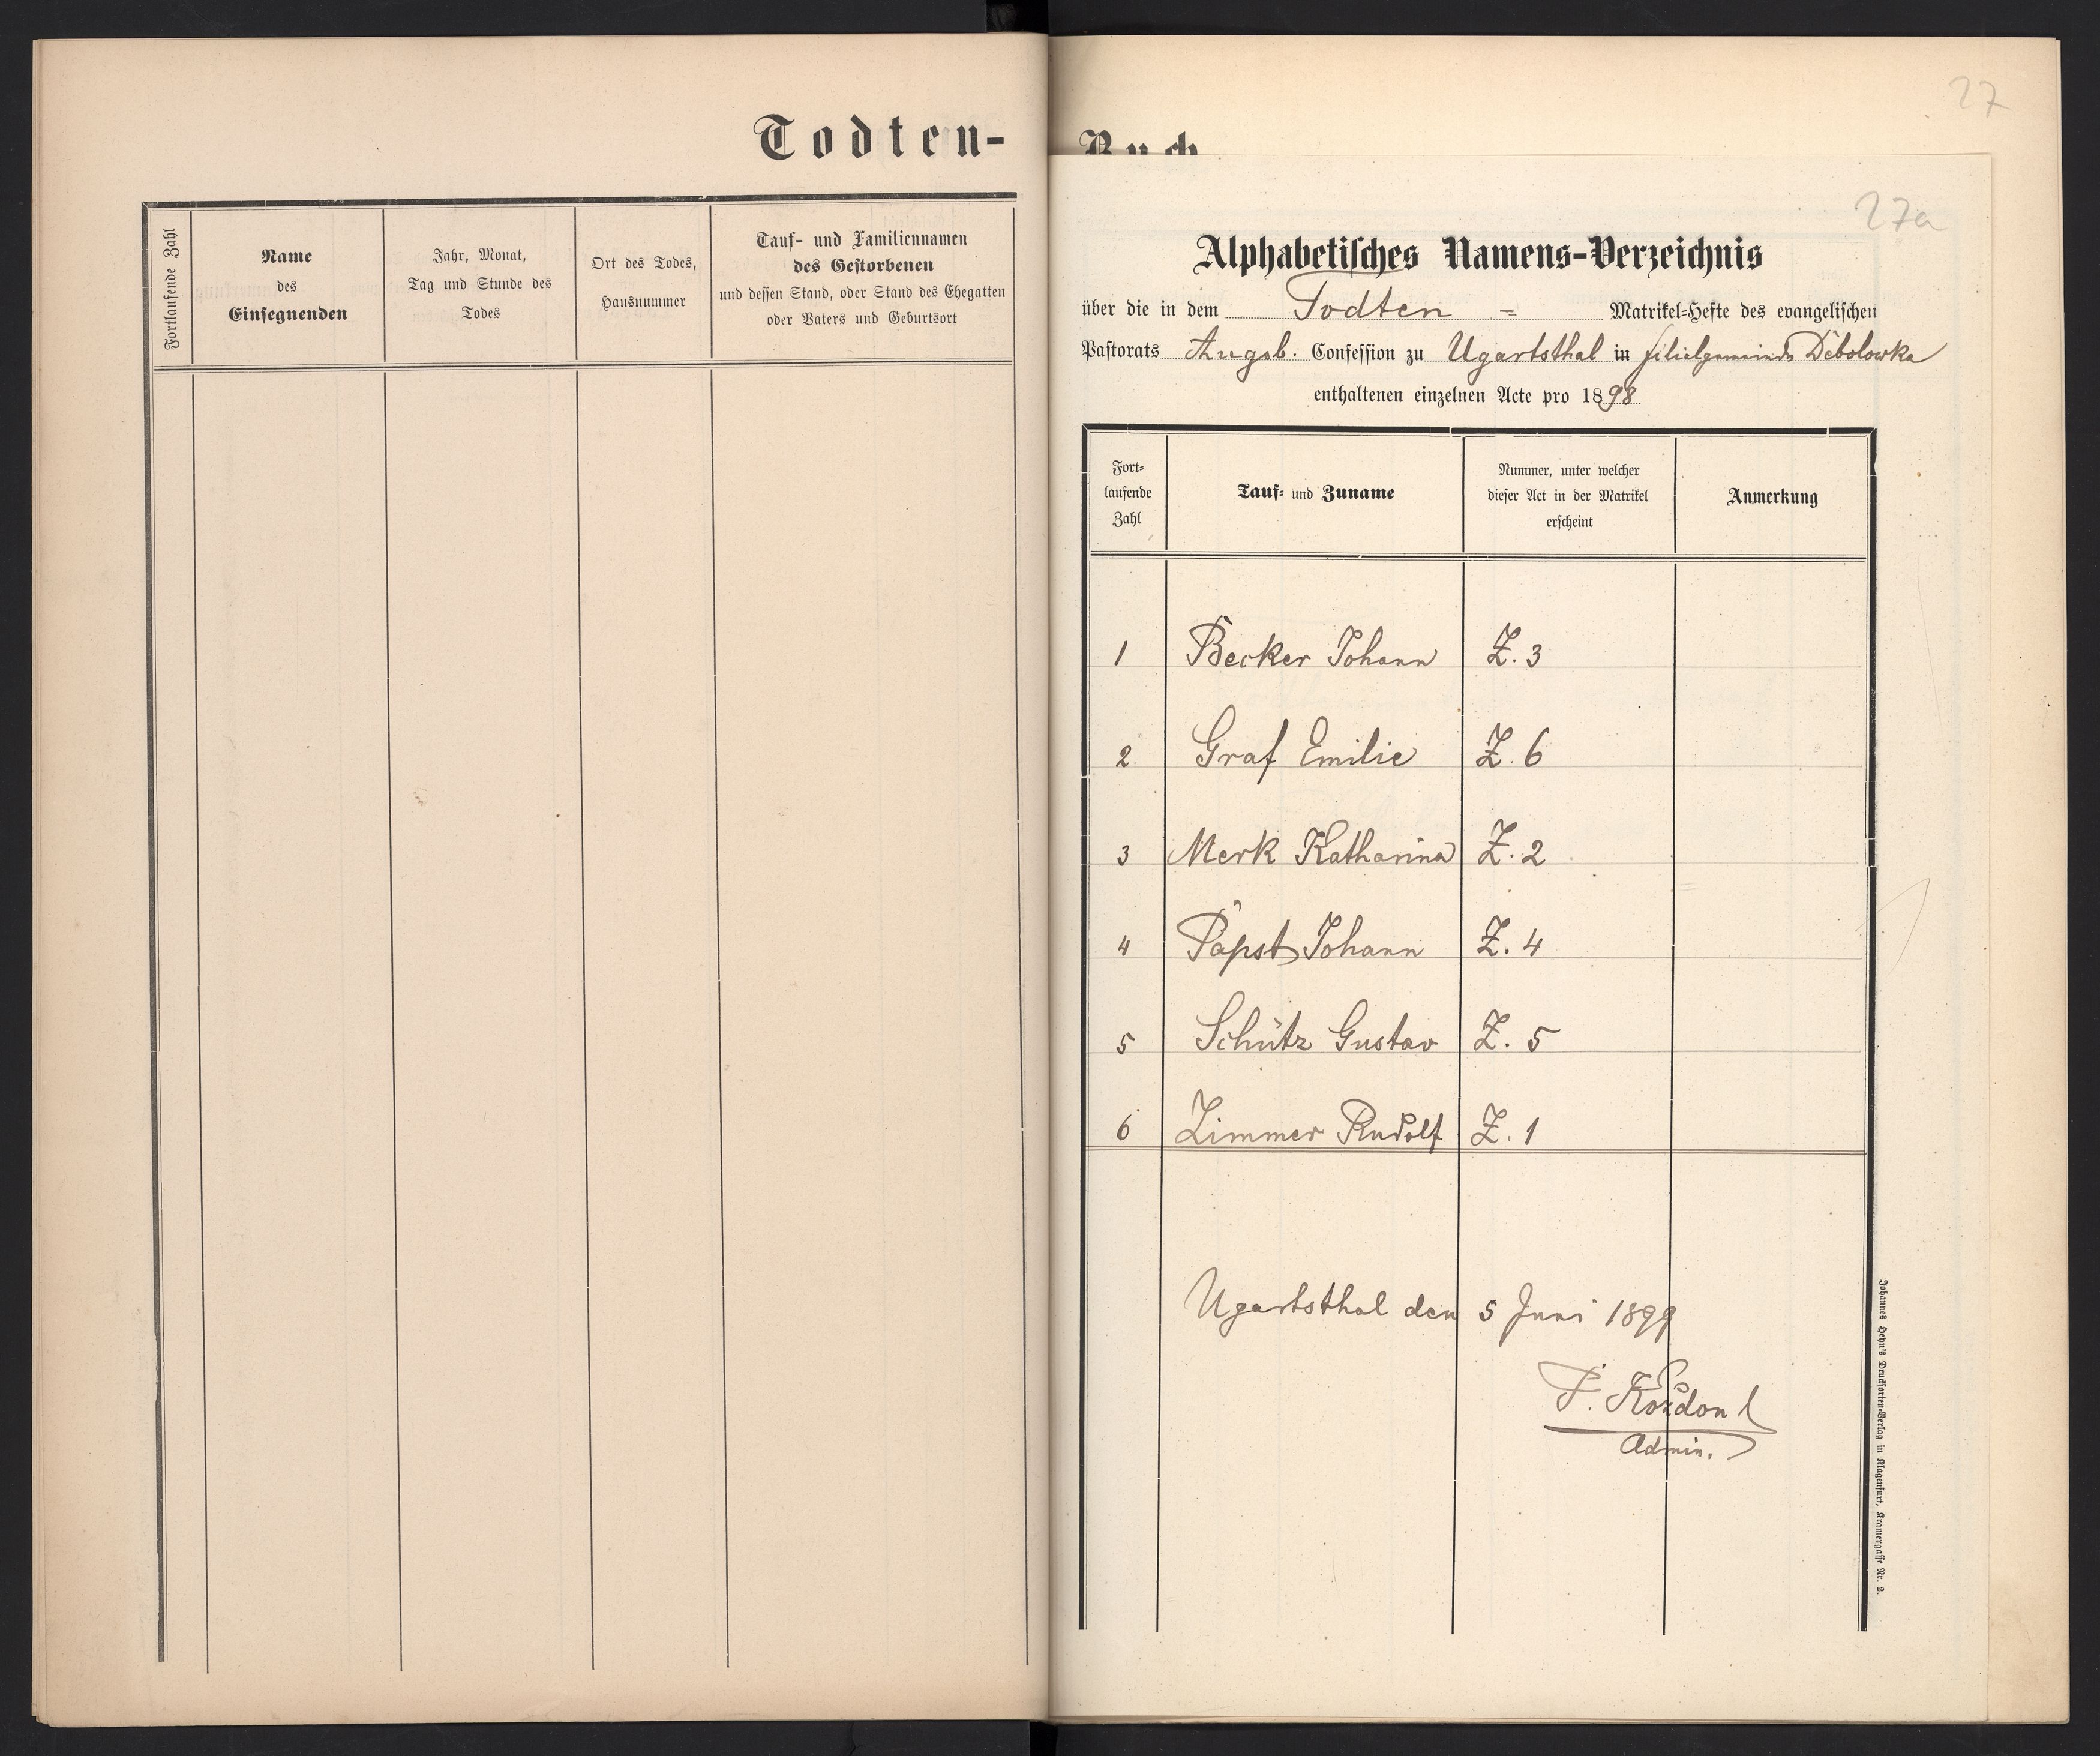 Todten-
Fortlaufende Zahl
Name
des
Einsegnenden
Jahr, Monat,
Tag und Stunde des
Todes
Ort des Todes,
Hausnummer
Tauf- und Familiennamen
des Gestorbenen
und dessen Stand, oder Stand des Ehegatten
oder Vaters und Geburtsort
27
Buch
27a
Alphabetisches Namens-Verzeichnis
über die in dem Todten = Matrikel-Hefte des evangelischen
Pastorats Augsb. Confession zu Ugartsthal in filialgemeinde Debolowka
enthaltenen einzelnen Acte pro 1898
Fort-
laufende
Zahl
Tauf- und Zuname
Nummer, unter welcher
dieser Act in der Matrikel
erscheint
Anmerkung
1 Becker Johann Z. 3
2 Graf Emilie Z. 6
3 Merk Katharina Z. 2
4 Papst Johann Z. 4
5 Schütz Gustav Z. 5
6 Zimmer Rudolf Z. 1
Ugartsthal den 5 Juni 1899
F. Kozdon
Admin.
Johannes Heyn's Drucksorten-Verlag in Klagenfurt, Kramergasse Nr. 2.